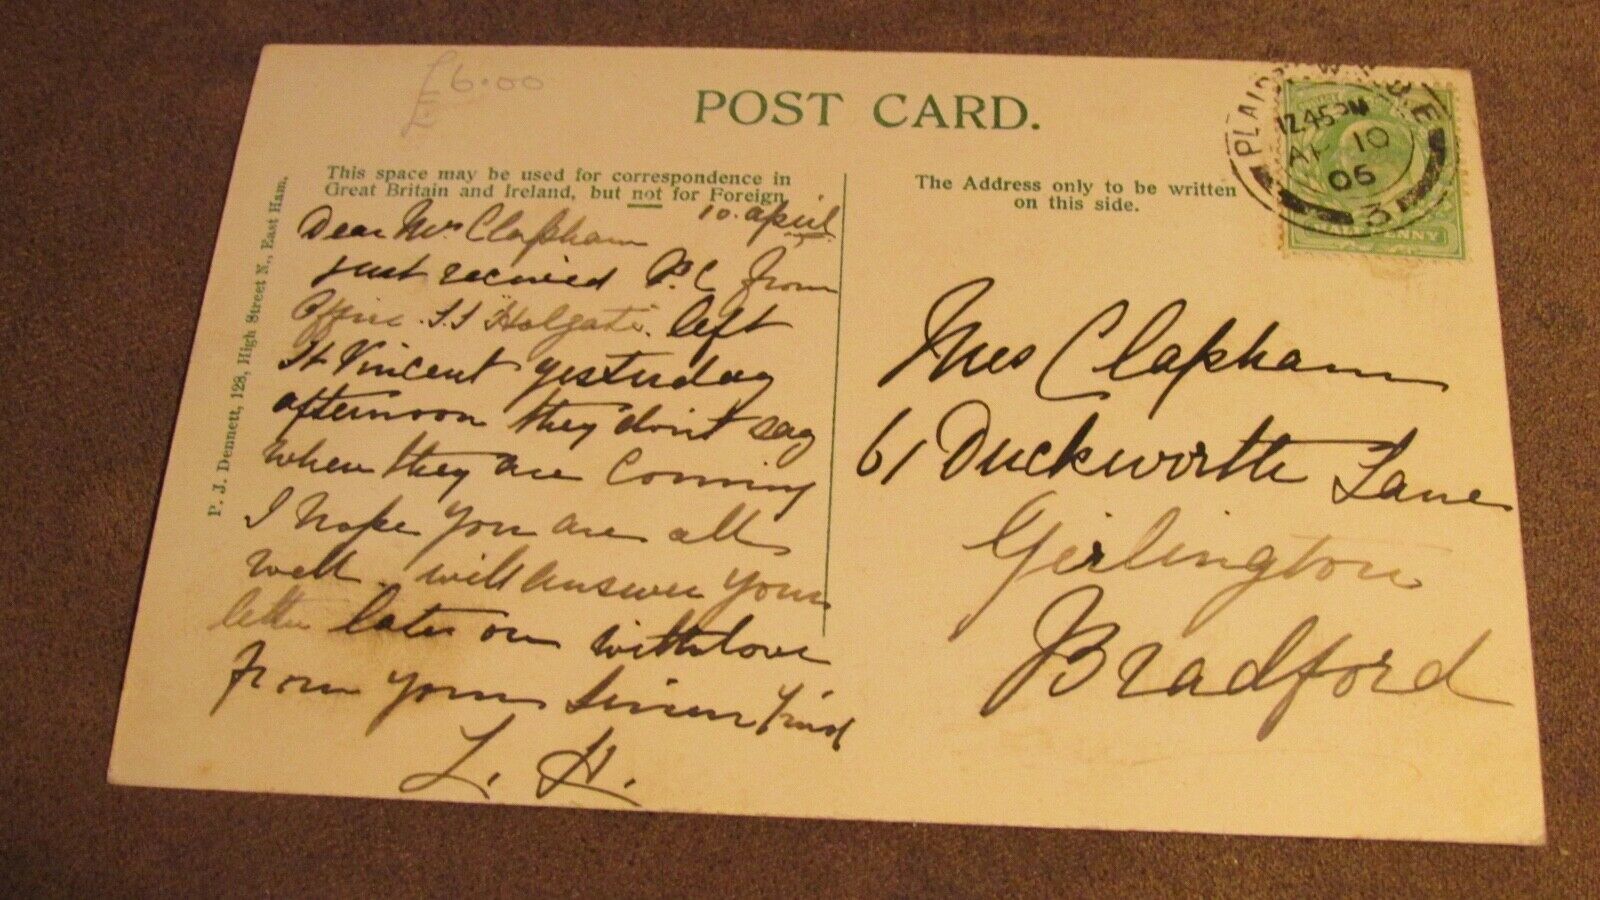 £6.00
POST CARD.
This space may be used for correspondence in
Great Britain and Ireland, but not for Foreign
The Address only to be written
on this side.
P. J. Dennett, 128, High Street N., East Ham.
12.45PM
AP 10
06
3
10. april
Dear Mrs Clapham
just received P.C from
Office S.S Holgate. left
St Vincent yesterday
afternoon they don't say
when they are Coming
I hope you are all
well. will answer your
letter later on with love
from your Sincere friend
L. H.
Mrs Clapham
61 Duckworth Lane
Girlington
Bradford